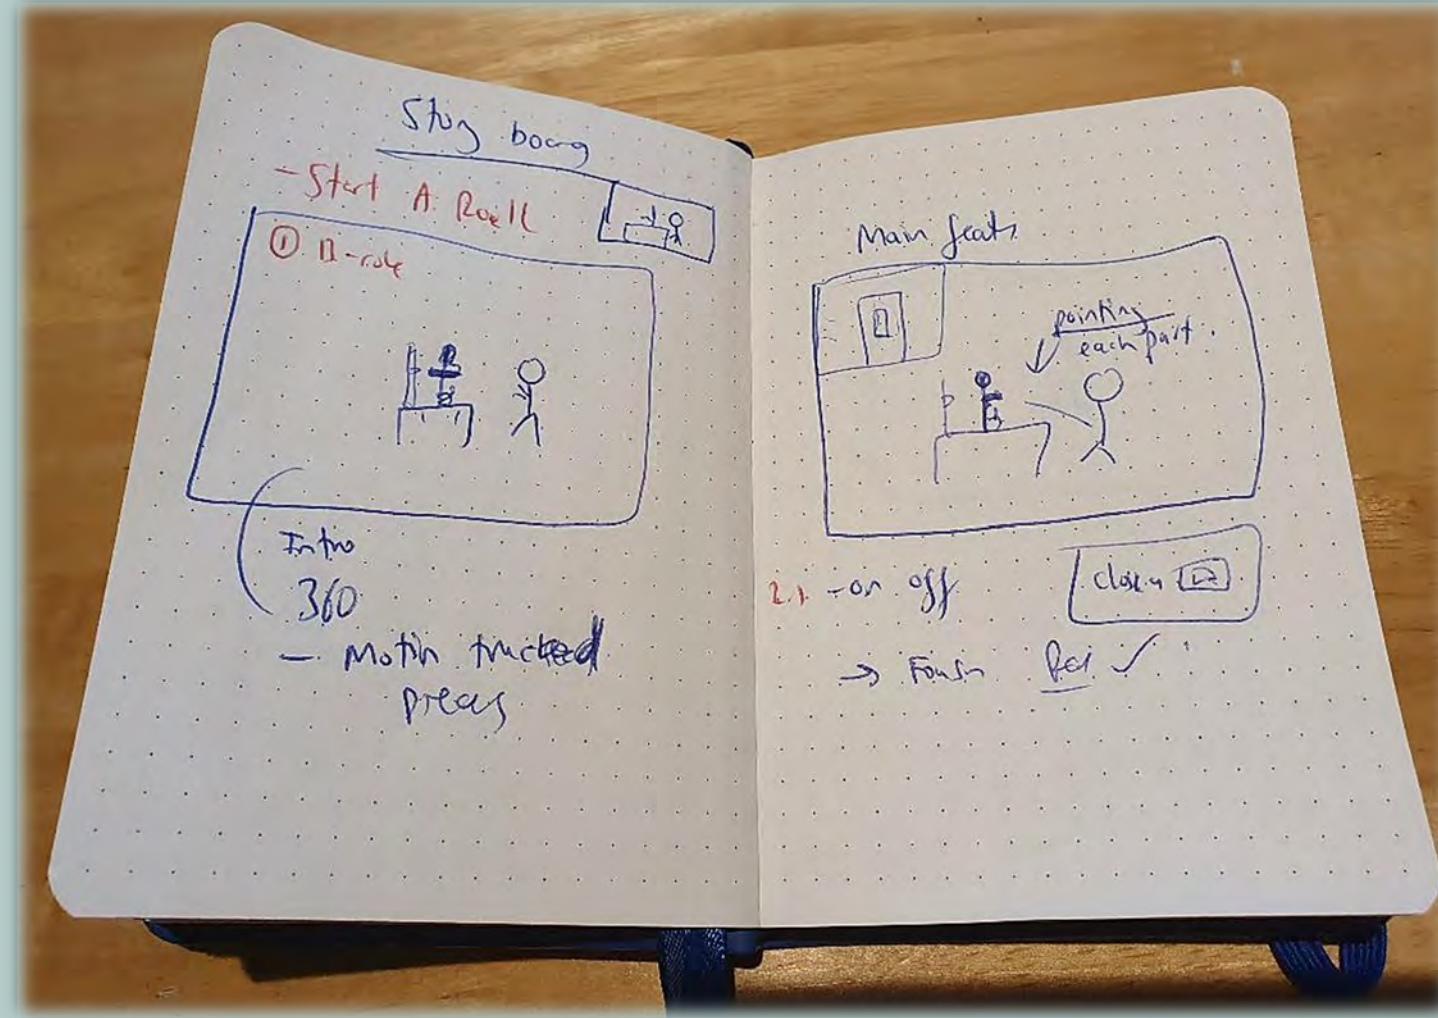 Story board
- Start A Roell
① B-role
Intro
360
- Motin tracked
pieces
Main feats
pointing
each part.
2.1 - on off
close u
→ ✓